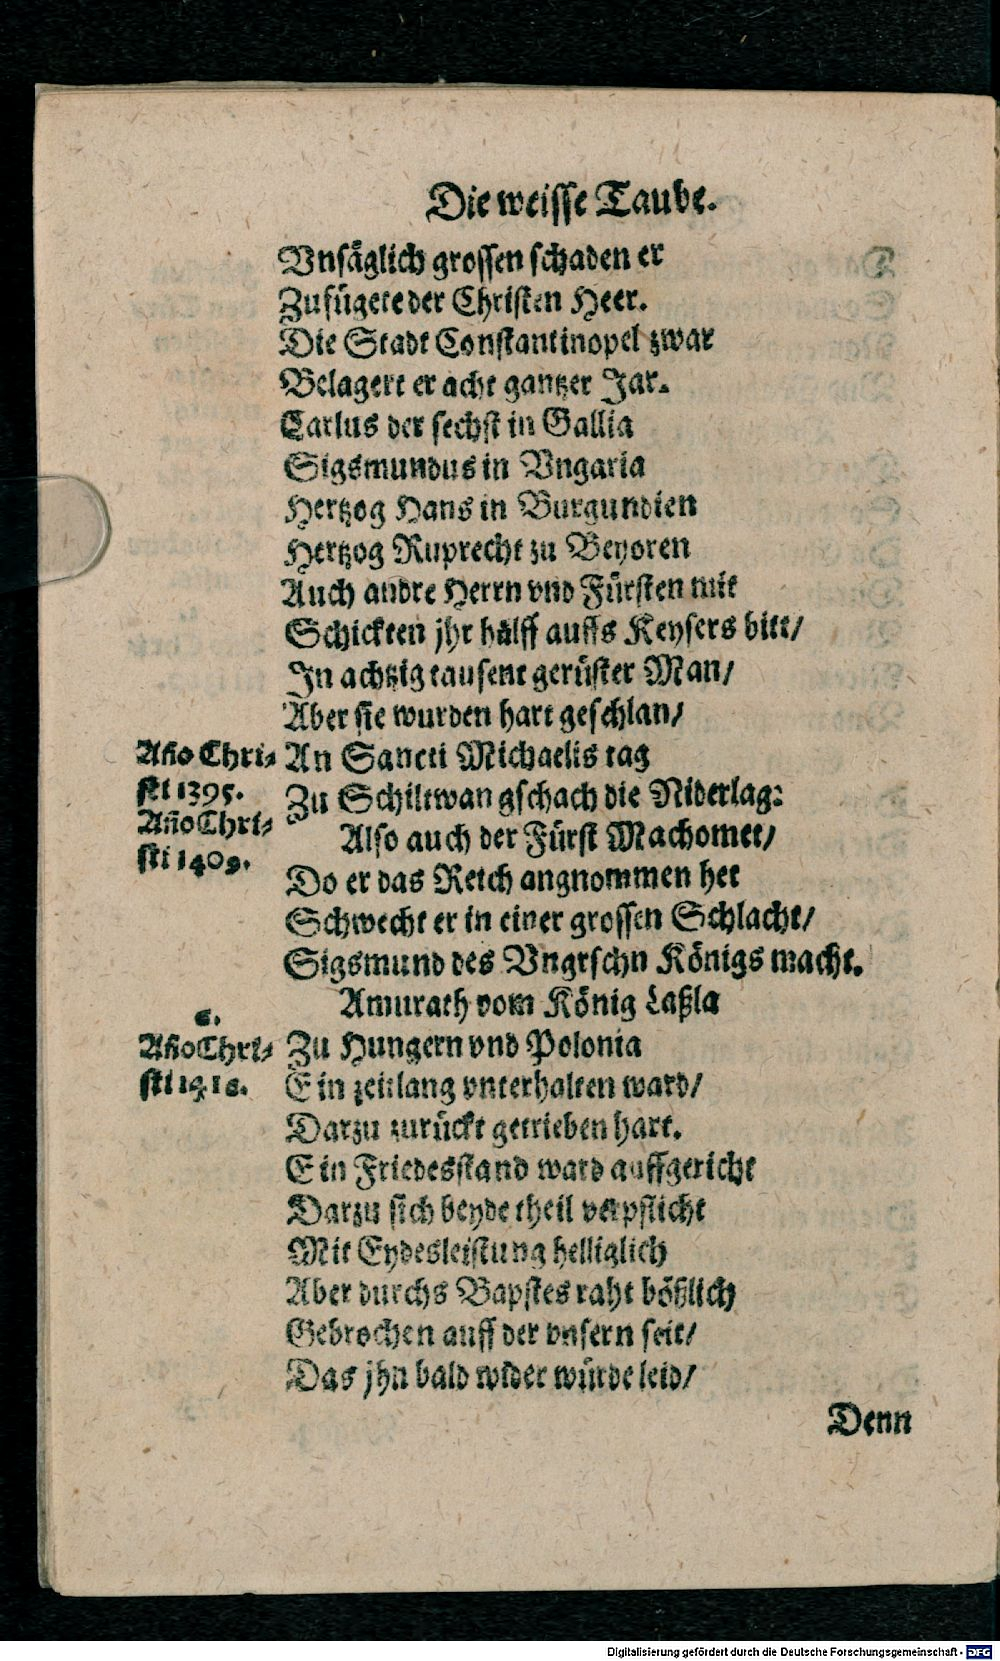 Die weisse Taube.
Vnsäglich grossen schaden er
Zufügete der Christen Heer.
Die Stadt Constantinopel zwar
Belagert er acht gantzer Jar.
Carlus der sechst in Gallia
Sigsmundus in Vngaria
Hertzog Hans in Burgundien
Hertzog Ruprecht zu Beyoren
Auch andre Herrn vnd Fürsten mit
Schickten jhr hülff auffs Keysers bitt/
In achtzig tausent gerüster Man/
Aber sie wurden hart geschlan/
Año Chri-
sti 1395.
An Sancti Michaelis tag
Zu Schiltwan gschach die Niderlag:
Año Chri-
sti 1409.
Also auch der Fürst Machomet/
Do er das Reich angnommen het
Schwecht er in einer grossen Schlacht/
Sigsmund des Vngrschn Königs macht.
Amurath vom König Laßla
6.
Año Chri-
sti
Zu Hungern vnd Polonia
Ein zeitlang vnterhalten ward/
Darzu zurückt getrieben hart.
Ein Friedesstand ward auffgericht
Darzu sich beyde theil verpflicht
Mit Eydesleistung helliglich
Aber durchs Bapstes raht bößlich
Gebrochen auff der vnsern seit/
Das jhn bald wider würde leid/
Denn
Digitalisierung gefördert durch die Deutsche Forschungsgemeinschaft - DFG